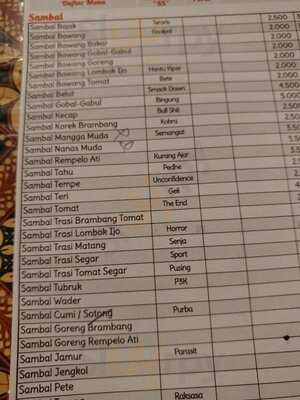 Daftar Menu "SS"
Sambal
Sambal Bajak Teroris 2.500
Sambal Bawang 2.000
Sambal Bawang Bakar 2.000
Sambal Bawang Gobal-Gabul 2.000
Sambal Bawang Goreng 2.000
Sambal Bawang Lombok Ijo Hantu Viper 2.000
Sambal Bawang Tomat Bete 2.000
Sambal Belut Smack Down 4.500
Sambal Gobal-Gabul Bingung 5.000
Sambal Kecap Bull Shit
Sambal Korek Brambang Kobra
Sambal Mangga Muda Semangat
Sambal Nanas Muda
Sambal Rempelo Ati Kurang Ajar
Sambal Tahu Pedhe
Sambal Tempe Unconfidence
Sambal Teri Geli
Sambal Tomat The End
Sambal Trasi Brambang Tomat
Sambal Trasi Lombok Ijo Horror
Sambal Trasi Matang Senja
Sambal Trasi Segar Sport
Sambal Trasi Tomat Segar Pusing
Sambal Tubruk P3K
Sambal Wader
Sambal Cumi / Sotong Purba
Sambal Goreng Brambang
Sambal Goreng Rempelo Ati
Sambal Jamur Parasit
Sambal Jengkol
Sambal Pete
Raksasa